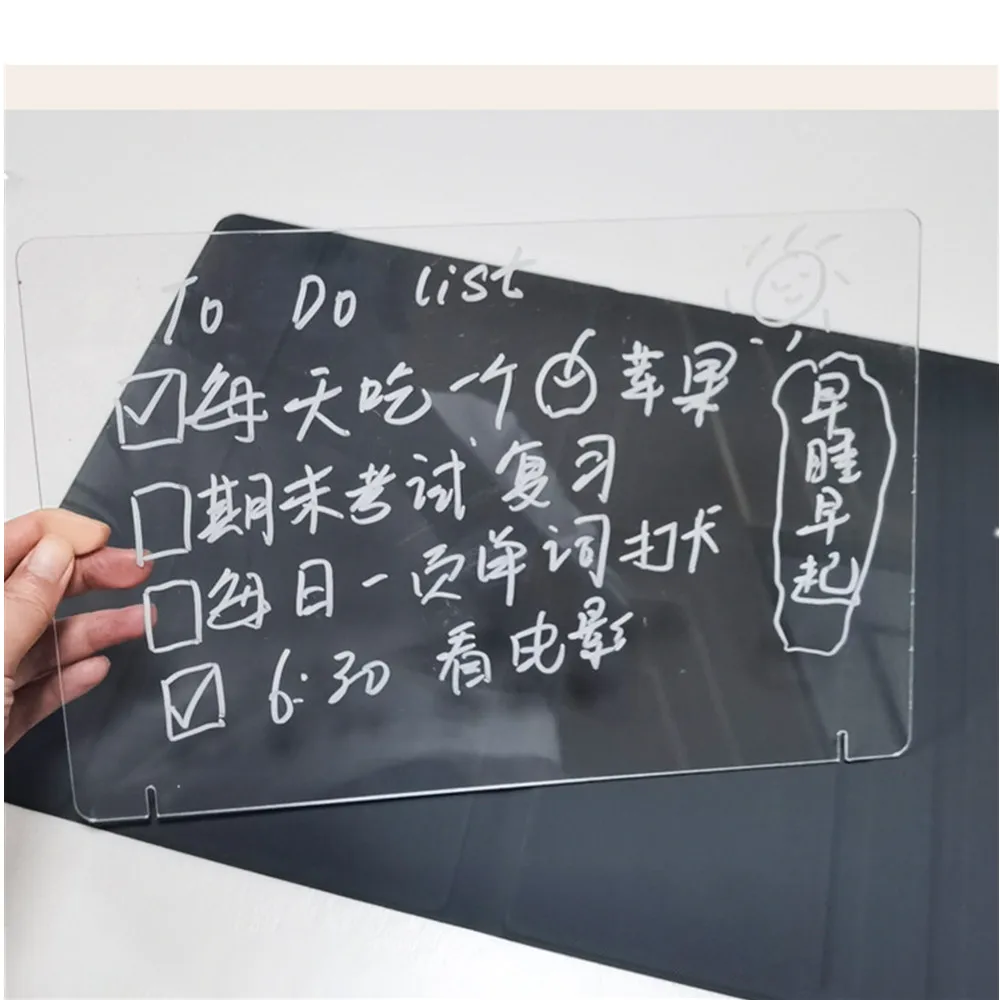 To Do list
☑每天吃一个苹果
☐期末考试复习
☐每日一页单词打卡
☑6:30 看电影
早睡早起